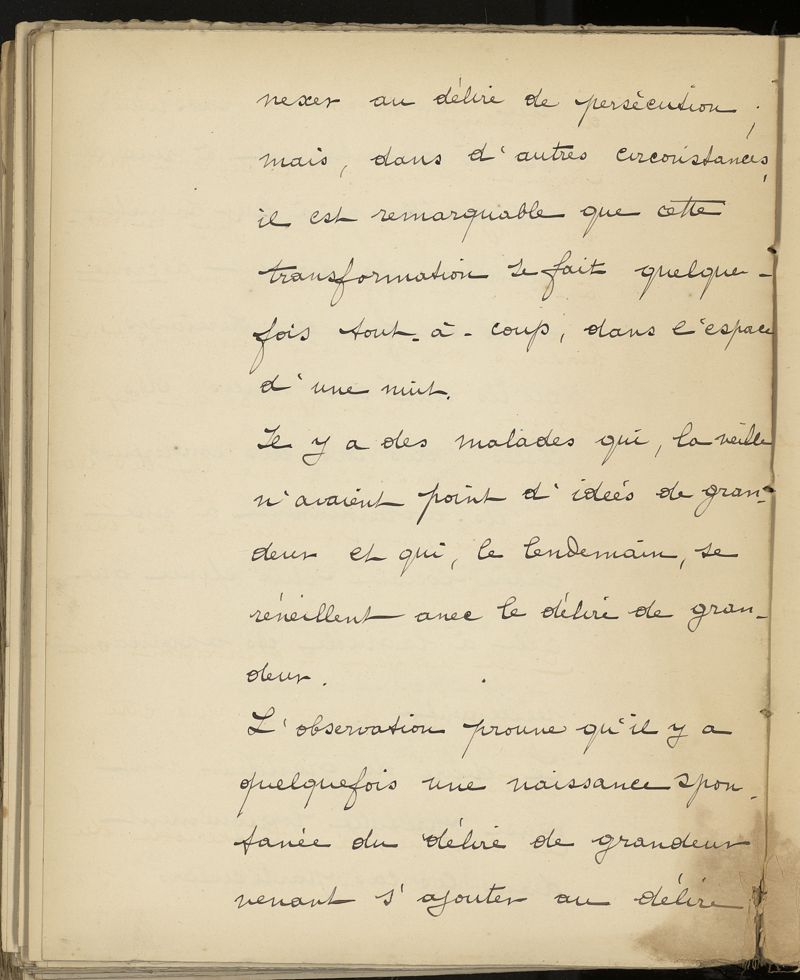 nexer au délire de persécution ;
mais, dans d'autres circonstances,
il est remarquable que cette
transformation se fait quelque-
fois tout-à-coup, dans l'espace
d'une nuit.
Il y a des malades qui, la veille
n'avaient point d'idées de gran-
deur et qui, le lendemain, se
réveillent avec le délire de gran-
deur.
L'observation prouve qu'il y a
quelquefois une naissance spon-
tanée du délire de grandeur
venant s'ajouter au délire